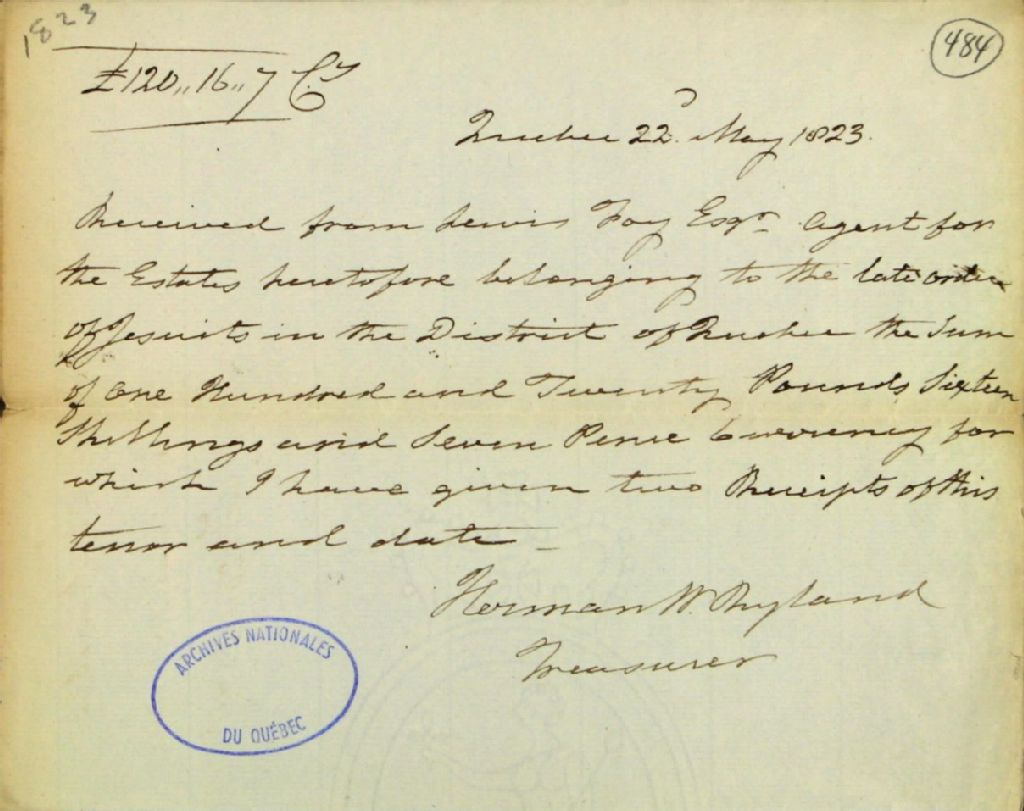 1823
484
£120,,16,,7 Cy
Quebec 22d. May 1823.
Received from Lewis Foy Esqr. Agent for
the Estates heretofore belonging to the late order
of Jesuits in the District of Quebec the Sum
of One Hundred and Twenty Pounds Sixteen
Shillings and Seven Pence Currency for
which I have given two Receipts of this
tenor and date –
Herman W Ryland
Treasurer
ARCHIVES NATIONALES
DU QUÉBEC